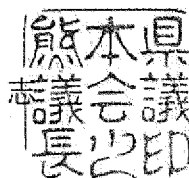 熊本県
志
議会議
長之印